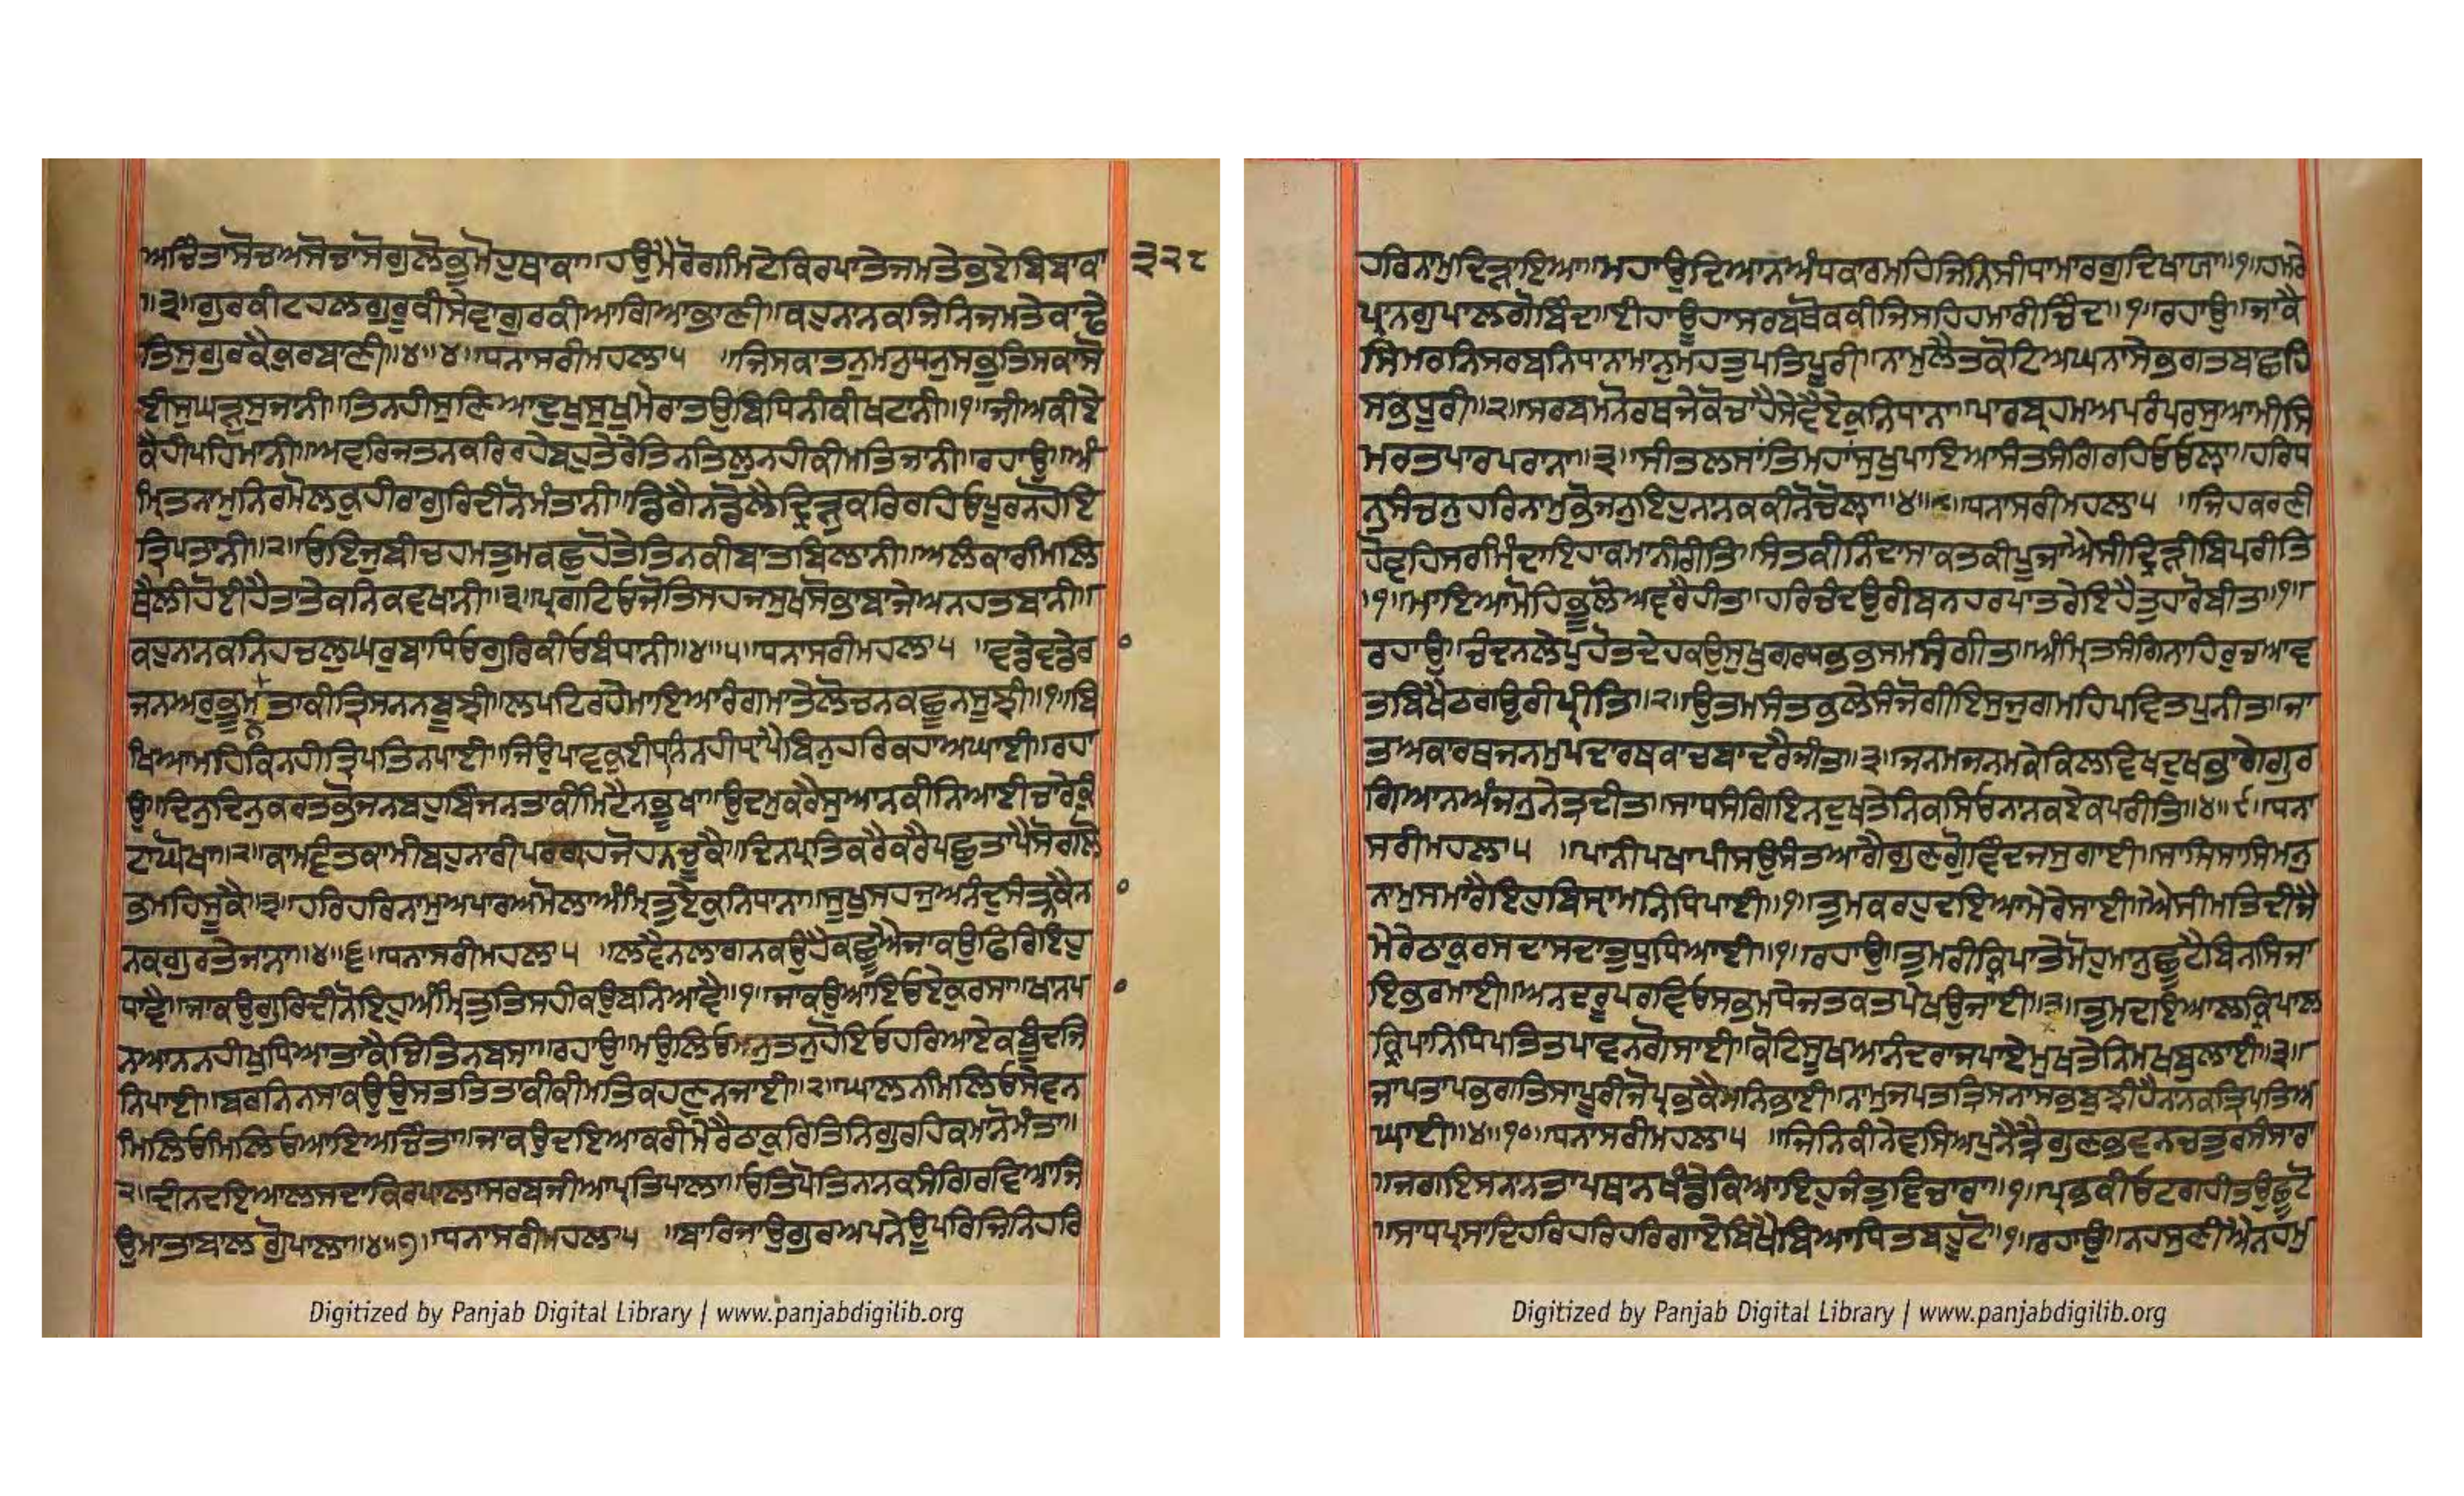 ਅਚਿੰਤਾਸੋਚਅਸੋਚਾਸੋਗੁਲੋਭੁਮੋਹੁਥਾਕਾ॥ਹਉਮੈਰੋਗਮਿਟੇਕਿਰਪਾਤੇਜਮਤੇਭਏਬਿਬਾਕਾ ੩੨੮
॥੩॥ਗੁਰਕੀਟਹਲਗੁਰੂਕੀਸੇਵਾਗੁਰਕੀਆਗਿਆਭਾਣੀ॥ਕਹੁਨਾਨਕਜਿਨਿਜਮਤੇਕਾਢੇ
ਤਿਸੁਗੁਰਕੈਕੁਰਬਾਣੀ॥੪॥੪॥ਧਨਾਸਰੀਮਹਲਾ੫ ॥ਜਿਸਕਾਤਨੁਮਨੁਧਨੁਸਭੁਤਿਸਕਾਸੋ
ਈਸੁਘੜੁਸੁਜਾਨੀ॥ਤਿਨਹੀਸੁਣਿਆਦੁਖੁਸੁਖੁਮੇਰਾਤਉਬਿਧਿਨੀਕੀਖਟਾਨੀ॥੧॥ਜੀਅਕੀਏ
ਕੈਹੀਪਹਿਮਾਨੀ॥ਅਵਰਿਜਤਨਕਰਿਰਹੇਬਹੁਤੇਰੇਤਿਨਤਿਲੁਨਹੀਕੀਮਤਿਜਾਨੀ॥ਰਹਾਉ॥ਅੰ
ਮ੍ਰਿਤਨਾਮੁਨਿਰਮੋਲਕੁਹੀਰਾਗੁਰਿਦੀਨੋਮੰਤਾਨੀ॥ਡਿਗੈਨਡੋਲੈਦ੍ਰਿੜੁਕਰਿਰਹਿਓਪੂਰਨਹੋਇ
ਤ੍ਰਿਪਤਾਨੀ॥੨॥ਓਇਜੁਬੀਚਹਮਤੁਮਕਛੁਹੋਤੇਤਿਨਕੀਬਾਤਬਿਲਾਨੀ॥ਅਲੰਕਾਰਮਿਲਿ
ਥੈਲੀਹੋਈਹੈਤਾਤੇਕਨਿਕਵਖਾਨੀ॥੩॥ਪ੍ਰਗਟਿਓਜੋਤਿਸਹਜਸੁਖਸੋਭਾਬਾਜੇਅਨਹਤਬਾਨੀ॥
ਕਹੁਨਾਨਕਨਿਹਚਲਘਰੁਬਾਧਿਓਗੁਰਿਕੀਓਬੰਧਾਨੀ॥੪॥੫॥ਧਨਾਸਰੀਮਹਲਾ੫ ॥ਵਡੇਵਡੇਰਾ
ਜਨਅਰੁਭੂਮਨਤਾਕੀਤ੍ਰਿਸਨਨਬੂਝੀ॥ਲਪਟਿਰਹੇਮਾਇਆਰੰਗਮਾਤੇਲੋਚਨਕਛੂਨਸੂਝੀ॥੧॥ਬਿ
ਖਿਆਮਹਿਕਿਨਹੀਤ੍ਰਿਪਤਿਨਪਾਈ॥ਜਿਉਪਾਵਕੁਈਧਨਿਨਹੀਧ੍ਰਾਪੈਬਿਨੁਹਰਿਕਹਾਅਘਾਈ॥ਰਹਾ
ਉ॥ਦਿਨੁਦਿਨੁਕਰਤਭੋਜਨਬਹੁਬਿੰਜਨਤਾਕੀਮਿਟੈਨਭੂਖਾ॥ਉਦਮੁਕਰੈਸੁਆਨਕੀਨਿਆਈਚਾਰੇਕੁੰ
ਟਾਘੋਖਾ॥੨॥ਕਾਮਵੰਤਕਾਮੀਬਹੁਨਾਰੀਪਰਗ੍ਰਿਹਜੋਹਨਚੂਕੈ॥ਦਿਨਪ੍ਰਤਿਕਰੈਕਰੈਪਛੁਤਾਪੈਸੋਗਲੋ
ਭਮਹਿਸੂਕੈ॥੩॥ਹਰਿਹਰਿਨਾਮੁਅਪਾਰਅਮੋਲਾਅੰਮ੍ਰਿਤੁਏਕੁਨਿਧਾਨਾ॥ਸੂਖੁਸਹਜੁਅਨੰਦੁਸੰਤਨਕੈਨਾ
ਨਕਗੁਰਤੇਜਾਨਾ॥੪॥੬॥ਧਨਾਸਰੀਮਹਲਾ੫ ॥ਲਵੈਨਲਾਗਨਕਉਹੈਕਛੂਐਜਾਕਉਫਿਰਿਇਹੁ
ਧਾਵੈ॥ਜਾਕਉਗੁਰਿਦੀਨੋਇਹੁਅੰਮ੍ਰਿਤੁਤਿਸਹੀਕਉਬਨਿਆਵੈ॥੧॥ਜਾਕਉਆਇਓਏਕੁਰਸਾ॥ਖਾਨਪਾ
ਨਆਨਨਹੀਖੁਧਿਆਤਾਕੈਚਿਤਿਨਬਸਾ॥ਰਹਾਉ॥ਮਉਲਿਓਮਨੁਤਨੁਹੋਇਓਹਰਿਆਏਕਬੂੰਦਜਿ
ਨਿਪਾਈ॥ਬਰਨਿਨਸਾਕਉਉਸਤਤਿਤਾਕੀਕੀਮਤਿਕਹਣੁਨਜਾਈ॥੨॥ਘਾਲਨਮਿਲਿਓਸੇਵਨ
ਮਿਲਿਓਮਿਲਿਓਆਇਅਚਿੰਤਾ॥ਜਾਕਉਦਇਆਕਰੀਮੇਰੈਠਾਕੁਰਿਤਿਨਿਗੁਰਹਿਕਮਾਨੋਮੰਤਾ॥
੩॥ਦੀਨਦਇਆਲਸਦਾਕਿਰਪਾਲਾਸਰਬਜੀਆਪ੍ਰਤਿਪਾਲਾ॥ਓਤਿਪੋਤਿਨਾਨਕਸੰਗਿਰਵਿਆਜਿ
ਉਮਾਤਾਬਾਲਗੋੁਪਾਲਾ॥੪॥੭॥ਧਨਾਸਰੀਮਹਲਾ੫ ॥ਬਾਰਿਜਾਉਗੁਰਅਪਨੇਊਪਰਿਜਿਨਿਹਰਿ
ਹਰਿਨਾਮੁਦ੍ਰਿੜਾਇਆ॥ਮਹਾਉਦਿਆਨਅੰਧਕਾਰਮਹਿਜਿਨਿਸੀਧਾਮਾਰਗੁਦਿਖਾਯਾ॥੧॥ਹਮਰੇ
ਪ੍ਰਾਨਗੁਪਾਲਗੋਬਿੰਦ॥ਈਹਾਊਹਾਸਰਬਥੋਕਕੀਜਿਸਹਿਹਮਾਰੀਚਿੰਦ॥੧॥ਰਹਾਉ॥ਜਾਕੈ
ਸਿਮਰਨਿਸਰਬਨਿਧਾਨਾਮਾਨੁਮਹਤੁਪਤਿਪੂਰੀ॥ਨਾਮੁਲੈਤਕੋਟਿਅਘਨਾਸੇਭਗਤਬਾਛਹਿ
ਸਭੁਪੂਰੀ॥੨॥ਸਰਬਮਨੋਰਥਜੇਕੋਚਾਹੈਸੇਵੈਏਕੁਨਿਧਾਨਾ॥ਪਾਰਬ੍ਰਹਮਅਪਰੰਪਰਸੁਆਮੀਸਿ
ਮਰਤਪਾਰਪਰਾਨਾ॥੩॥ਸੀਤਲਸਾਂਤਿਮਹਾਂਸੁਖੁਪਾਇਆਸੰਤਸੰਗਿਰਹਿਓਓਲ੍ਹਾ॥ਹਰਿਧ
ਨੁਸੰਚਨੁਹਰਿਨਾਮੁਭੋਜਨੁਇਹੁਨਾਨਕਕੀਨੋਚੋਲ੍ਹਾ॥੪॥੮॥ਧਨਾਸਰੀਮਹਲਾ੫ ॥ਜਿਹਕਰਣੀ
ਹੋਵਹਿਸਰਮਿੰਦਾਇਹਾਕਮਾਨੀਰੀਤਿ॥ਸੰਤਕੀਨਿੰਦਾਸਾਕਤਕੀਪੂਜਾਐਸੀਦ੍ਰਿੜ੍ਹੀਬਿਪਰੀਤਿ
॥੧॥ਮਾਇਆਮੋਹਿਭੂਲੋਅਵਰੈਹੀਤ॥ਹਰਿਚੰਦਉਰੀਬਨਹਰਪਾਤਰੇਇਹੈਤੁਹਾਰੋਬੀਤ॥੧॥
ਰਹਾਉ॥ਚੰਦਨਲੇਪਹੋਤਦੇਹਕਉਸੁਖੁਗਰਧਭਭਸਮਸੰਗੀਤਿ॥ਅੰਮ੍ਰਿਤਸੰਗਿਨਾਹਿਰੁਚਆਵ
ਤਬਿਖੈਠਗਉਰੀਪ੍ਰੀਤਿ॥੨॥ਉਤਮਸੰਤਭਲੇਸੰਜੋਗੀਇਸੁਜੁਗਮਹਿਪਵਿਤਪੁਨੀਤ॥ਜਾ
ਤਅਕਾਰਥਜਨਮੁਪਦਾਰਥਕਾਚਬਾਦਰੈਜੀਤ॥੩॥ਜਨਮਜਨਮਕੇਕਿਲਵਿਖਦੁਖਭਾਗੇਗੁਰ
ਗਿਆਨਅੰਜਨੁਨੇਤ੍ਰਦੀਤ॥ਸਾਧਸੰਗਿਇਨਦੁਖਤੇਨਿਕਸਿਓਨਾਨਕਏਕਪਰੀਤਿ॥੪॥੯॥ਧਨਾ
ਸਰੀਮਹਲਾ੫ ॥ਪਾਨੀਪਖਾਪੀਸਉਸੰਤਆਗੈਗੁਣਗੋਵਿੰਦਜਸੁਗਾਈ॥ਸਾਸਿਸਾਸਿਮਨੁ
ਨਾਮੁਸਮਾਰੈਇਹੁਬਿਸ੍ਰਾਮਨਿਧਿਪਾਈ॥੧॥ਤੁਮਕਰਹੁਦਇਆਮੇਰੇਸਾਈ॥ਐਸੀਮਤਿਦੀਜੈ
ਮੇਰੇਠਾਕੁਰਸਦਾਸਦਾਤੁਧੁਧਿਆਈ॥੧॥ਰਹਾਉ॥ਤੁਮਰੀਕ੍ਰਿਪਾਤੇਮੋਹੁਮਾਨੁਛੂਟੈਬਿਨਸਿਜਾ
ਇਭਰਮਾਈ॥ਅਨਦਰੂਪੁਰਵਿਓਸਭਮਧੇਜਤਕਤਪੇਖਉਜਾਈ॥੨॥ਤੁਮਦਇਆਲਕ੍ਰਿਪਾਲ
ਕ੍ਰਿਪਾਨਿਧਿਪਤਿਤਪਾਵਨਗੋਸਾਈ॥ਕੋਟਿਸੂਖਆਨੰਦਰਾਜਪਾਏਮੁਖਤੇਨਿਮਖਬੁਲਾਈ॥੩॥
ਜਾਪਤਾਪਭਗਤਿਸਾਪੂਰੀਜੋਪ੍ਰਭਕੈਮਨਿਭਾਈ॥ਨਾਮੁਜਪਤਤ੍ਰਿਸਨਾਸਭਬੁਝੀਹੈਨਾਨਕਤ੍ਰਿਪਤਿਅ
ਘਾਈ॥੪॥੧੦॥ਧਨਾਸਰੀਮਹਲਾ੫ ॥ਜਿਨਿਕੀਨੇਵਸਿਅਪੁਨੈਤ੍ਰੈਗੁਣਭਵਨਚਤੁਰਸੰਸਾਰਾ
॥ਜਗਇਸਨਾਨਤਾਪਥਾਨਖੰਡੇਕਿਆਇਹੁਜੰਤੁਵਿਚਾਰਾ॥੧॥ਪ੍ਰਭਕੀਓਟਗਹੀਤਉਛੂਟੋ
॥ਸਾਧਪ੍ਰਸਾਦਿਹਰਿਹਰਿਹਰਿਗਾਏਬਿਖੈਬਿਆਧਿਤਬਹੂਟੋ॥੧॥ਰਹਾਉ॥ਨਹਸੁਣੀਐਨਹਮੁ
Digitized by Panjab Digital Library | www.panjabdigilib.org
Digitized by Panjab Digital Library | www.panjabdigilib.org